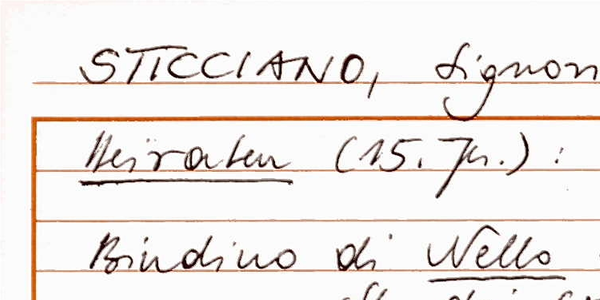 STICCIANO, Signori
Heiraten (15. Jh.):
Bindino di Nello